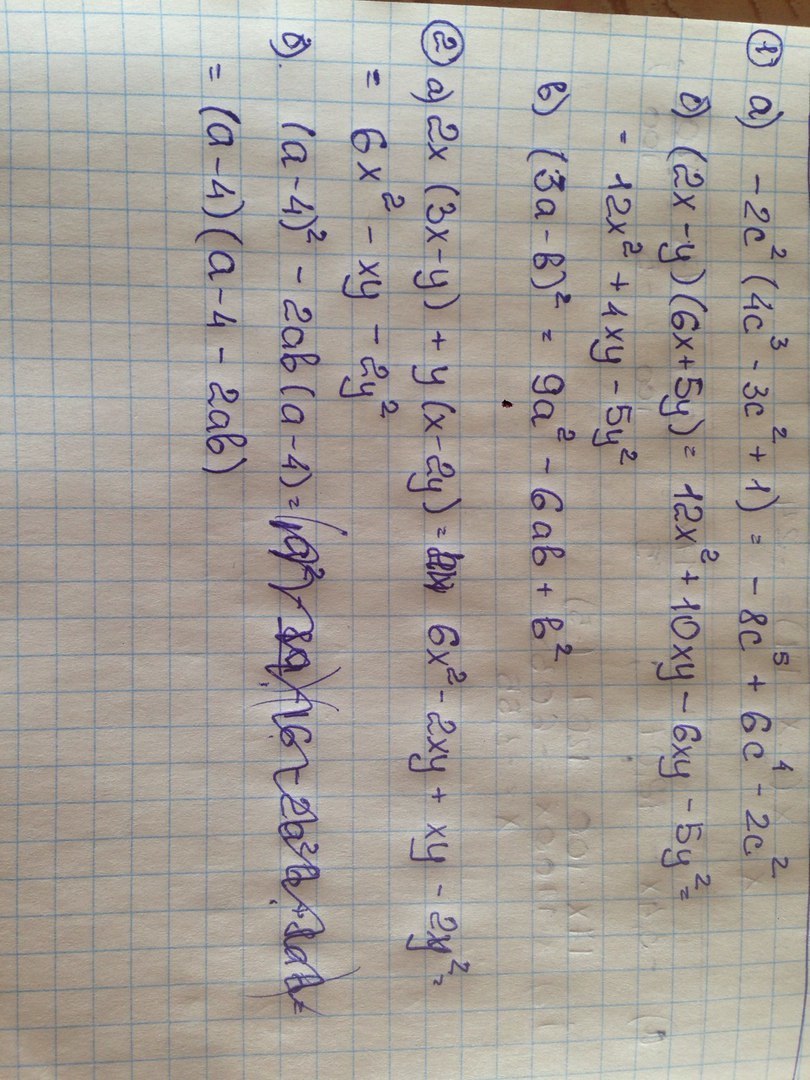 ① а) -2c² (4c³ - 3c² + 1) = - 8c⁵ + 6c⁴ - 2c²
б) (2x - y) (6x + 5y) = 12x² + 10xy - 6xy - 5y² =
= 12x² + 4xy - 5y²
в) (3a - b)² = 9a² - 6ab + b²
② а) 2x (3x - y) + y (x - 2y) = 6x² - 2xy + xy - 2y² =
= 6x² - xy - 2y²
б). (a - 4)² - 2ab (a - 4) =
= (a - 4) (a - 4 - 2ab)